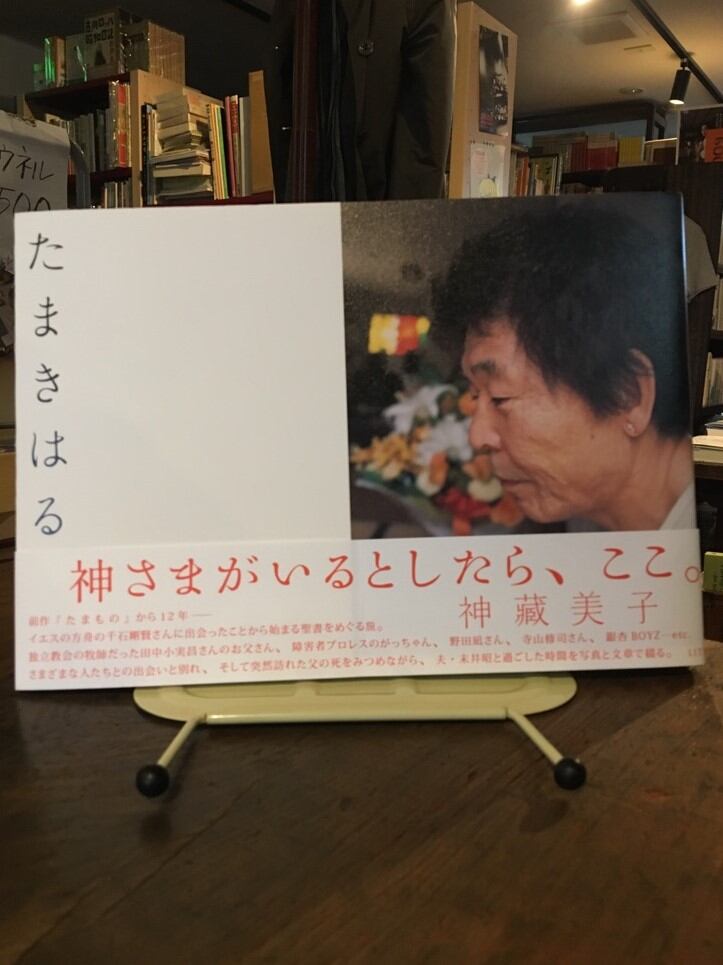 たまきはる
神さまがいるとしたら、ここ。
神藏美子
前作『たまもの』から12年──
イエスの方舟の千石剛賢さんに出会ったことから始まる聖書をめぐる旅。
独立教会の牧師だった田中小実昌さんのお父さん、障害者プロレスのがっちゃん、野田凪さん、寺山修司さん、銀杏BOYZ…etc.
さまざまな人たちとの出会いと別れ、そして突然訪れた父の死をみつめながら、夫・末井昭と過ごした時間を写真と文章で綴る。
ウネル
500